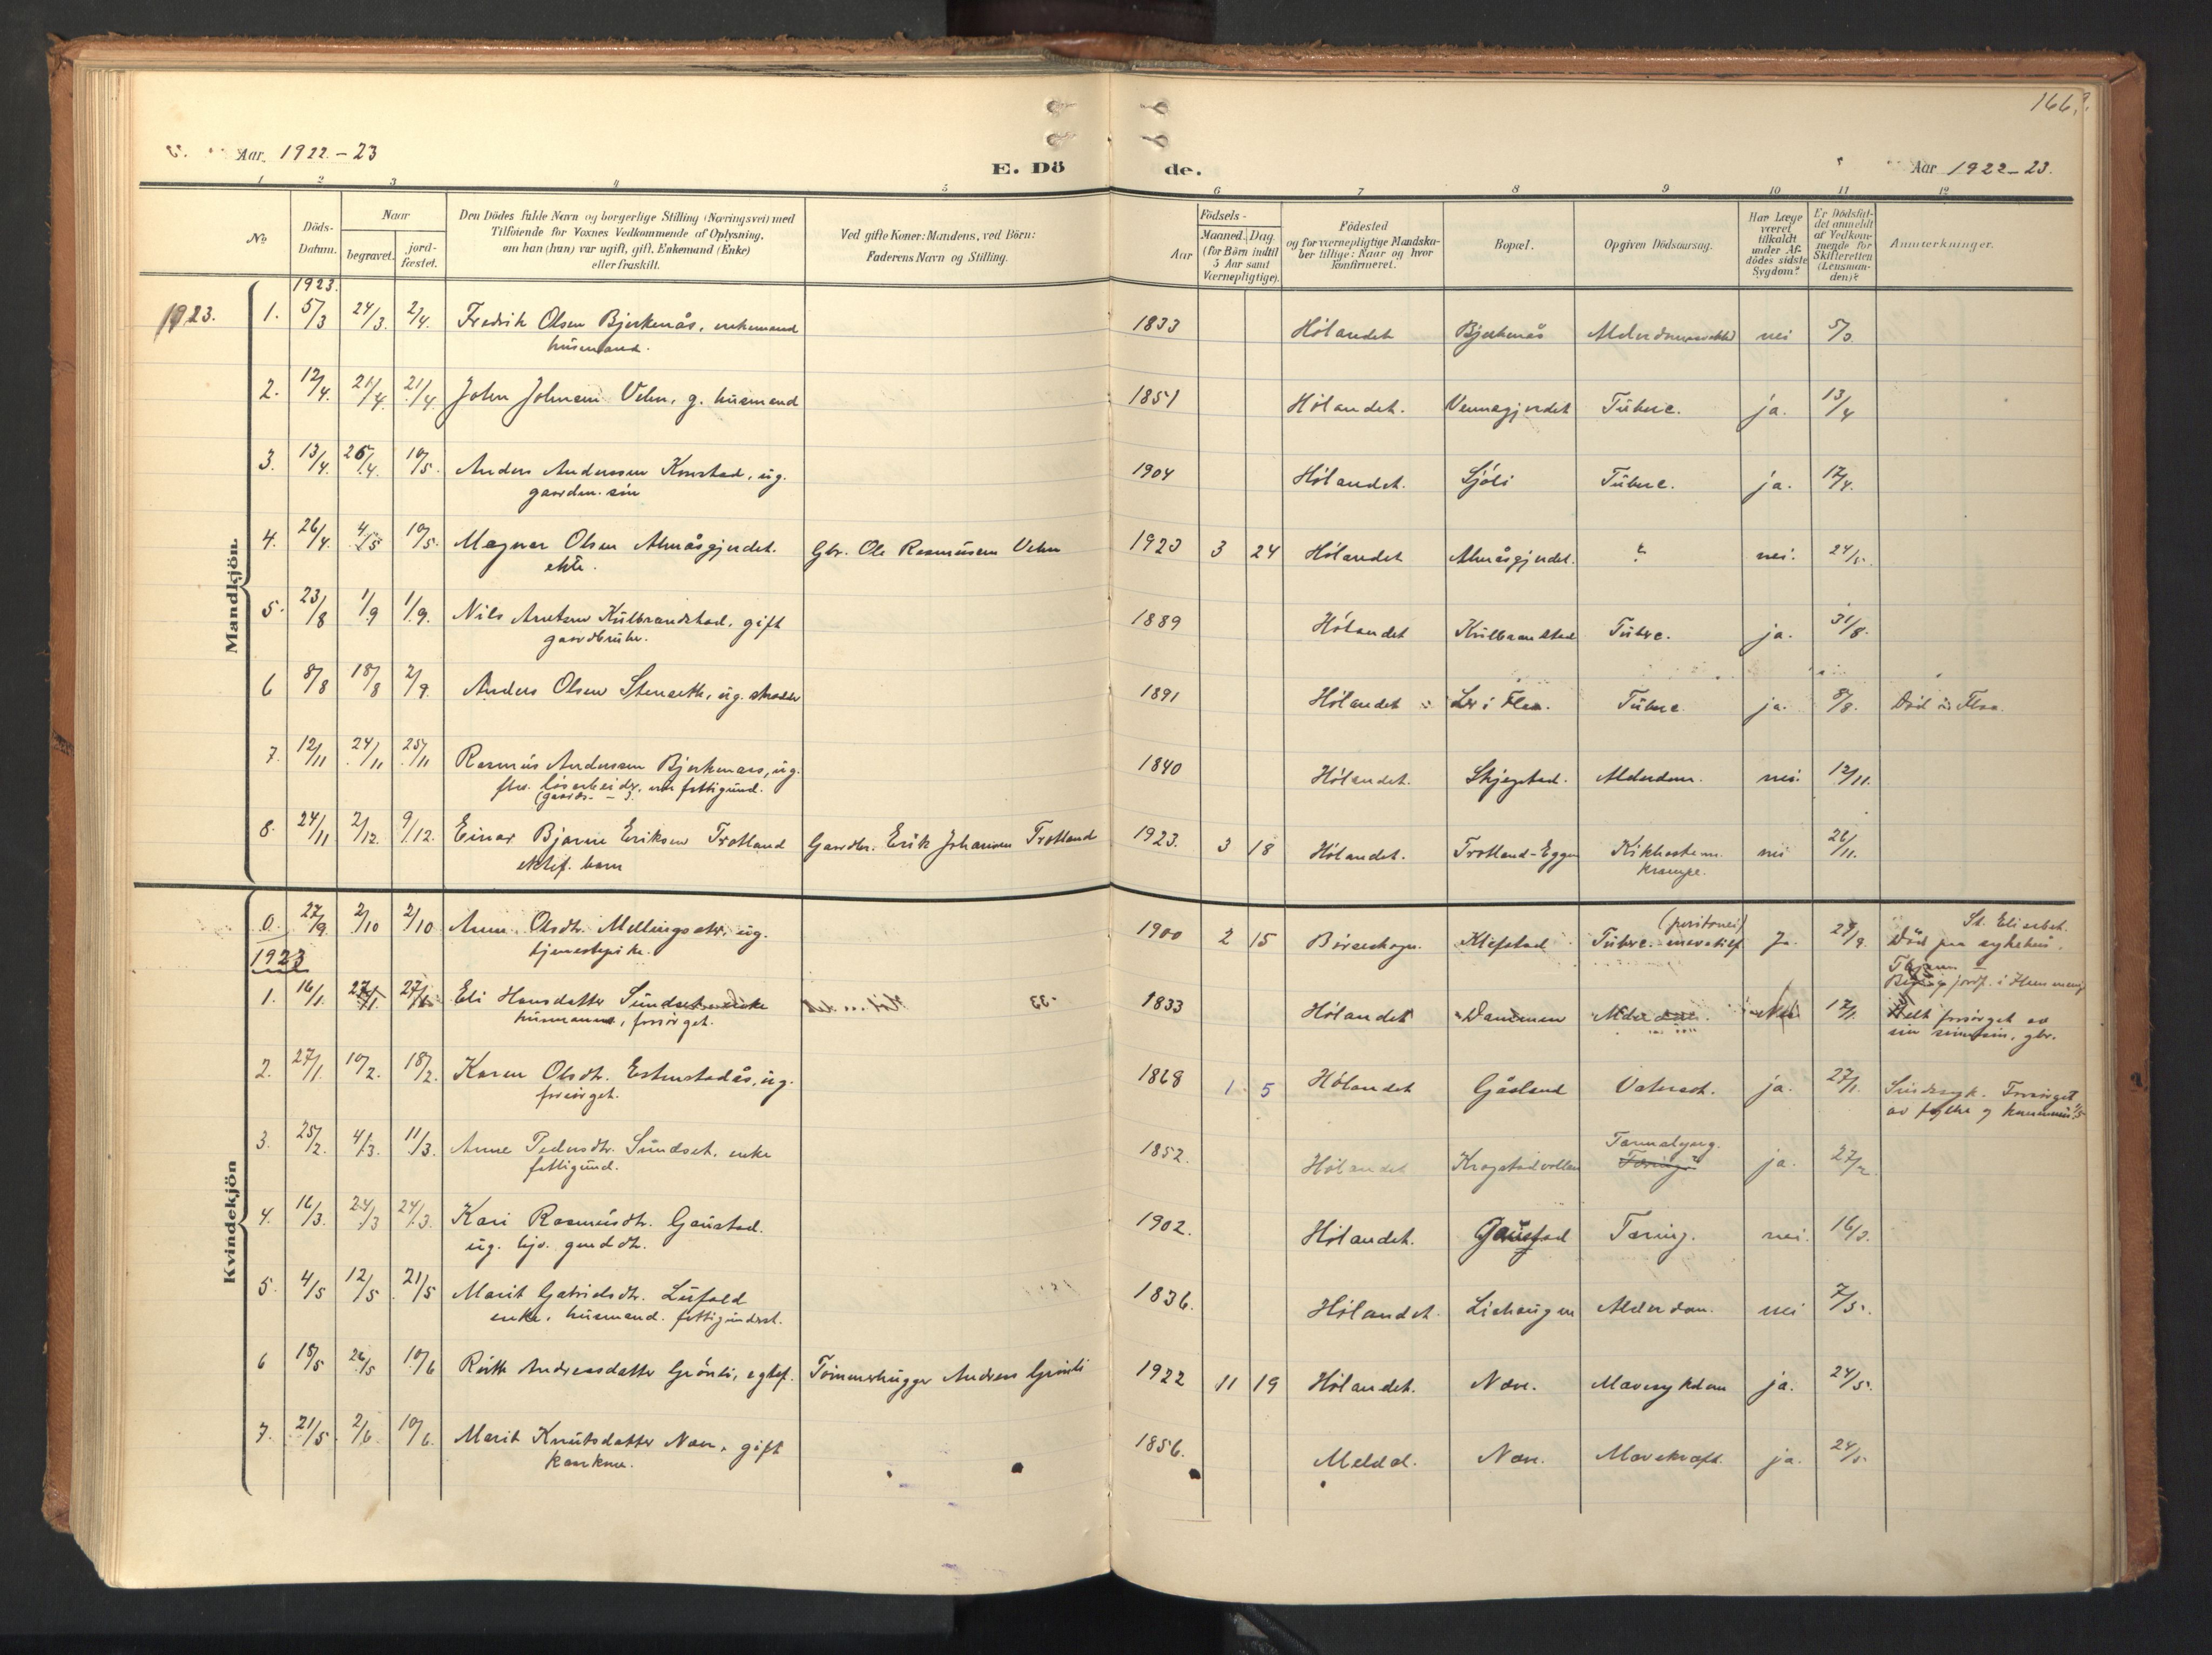 166.
Aar 1922-23
E. Dö de.
Aar 1922-23.
1 2 3 4 5 6 7 8 9 10 11 12
No
Döds-Datum.
Naar
begravet.
jord-fæstet.
Den Dödes fulde Navn og borgerlige Stilling (Næringsvei) med
Tilföiende for Voxnes Vedkommende af Oplysning,
om han (hun) var ugift, gift, Enkemand (Enke)
eller fraskilt.
Ved gifte Koner: Mandens, ved Börn:
Faderens Navn og Stilling.
Födsels-
Aar
Maaned. Dag
(for Börn indtil
5 Aar samt
Værnepligtige).
Födested
og for værnepligtige Mandska-
ber tillige: Naar og hvor
konfirmeret.
Bopæl.
Opgiven Dödsaarsag.
Har Læge
været
tilkaldt
under Af-
dödes sidste
Sygdom?
Er Dödsfal-
det anmeldt
af Vedkom-
mende for
Skifteretten
(Lensman-
den)?
Anmerkninger.
Mandkjön.
1923.
1923.
1. 5/3 24/3. 2/4. Fredrik Olsen Bjerkenås, enkemand 1833 Hølandet Bjerkenås nei 5/3
husmand.
2. 12/4. 21/4 21/4. John Johnsen Vehn, g. husmand 1851 Hølandet. Vennagjerdet Tuberc. ja. 13/4
3. 13/4. 26/4. 10/5. Anders Anderssen Konstad, ug. 1904 Hølandet. Sjøli Tuberc. ja. 17/4.
gaardm. søn
4. 26/4. 4/5 10/5. Magnar Olsen Almåsgjerdet. Gbr. Ole Rasmussen Vehn 1923 3 24 Hølandet Almåsgjerdet. ? nei. 24/5.
ekte.
5. 23/8 1/9 1/9. Nils Arntsen Kulbrandstad, gift 1889 Hølandet Kulbrandstad Tuberc. ja. 31/8.
gaardbruker.
6 8/8 18/8 2/9. Anders Olsen ug. 1891 Hølandet Ler i Flaa. Tuberc. ja. 8/8. Død i Flaa.
7. 12/11 24/11 25/11 Rasmus Anderssen Bjerkenaas, ug. 1840 Hølandet. Skjegstad. Alderdom. nei. 12/11.
løsarbeider, fattigund.
8. 24/11 2/12. 9/12. Einar Bjarne Eriksen Trotland Gaardbr. Erik Johansen Trotland 1923. 3 18 Hølandet. Trotland-Eggen Kikhoste m. nei 26/11.
ektef. barn krampe.
Kvindekjön
0. 27/9 2/10 2/10 Anne Olsdtr. ug. 1900 2 15 Børseskogn. Klefstad Tuberc. (peritonei) Ja. 29/9. St. Elisabet.
tjenestepike. Død paa sykehus,
1923
1. 16/1. 27/1. 27/1. Eli Hansdatter Sundset enke 1833 Hølandet Dammen Nei 17/1.
husmanns, forsørget. Helt forsørget av
sin gbr.
2. 27/1. 10/2. 18/2. Karen Olsdtr. Estenstadås, ug. 1868 1 5 Hølandet Gåsland Vatersot. ja. 27/1. Sindssyk. Forsørget
forsørget. av fylke og kommune
3. 25/2. 4/3. 11/3. Anne Pedersdtr. Sundset, enke 1852. Hølandet Krogstadvollen Tarmslyng. ja. 27/2.
fattigund.
4. 16/3. 24/3 24/3. Kari Rasmusdtr. Gaustad. 1902. Hølandet. Gaustad Tæring. nei. 16/3.
ug. hjv.
5. 4/5 12/5 21/5 Marit Gabrielsdtr. Lufald 1836. Hølandet. Liehaugen Alderdom. nei 7/5.
enke, husmand. fattigunderst.
6 18/5 26/5 10/6 Ruth Andreasdatter Grønli, egtef. Tømmerhugger Andreas Grønli 1922 11 19 Hølandet. Næve. Mavesykdom ja. 24/5.
7. 21/5 2/6 10/6. Marit Knutsdatter gift 1856. Meldal. Mavekræft. ja. 24/5
kaarkone.